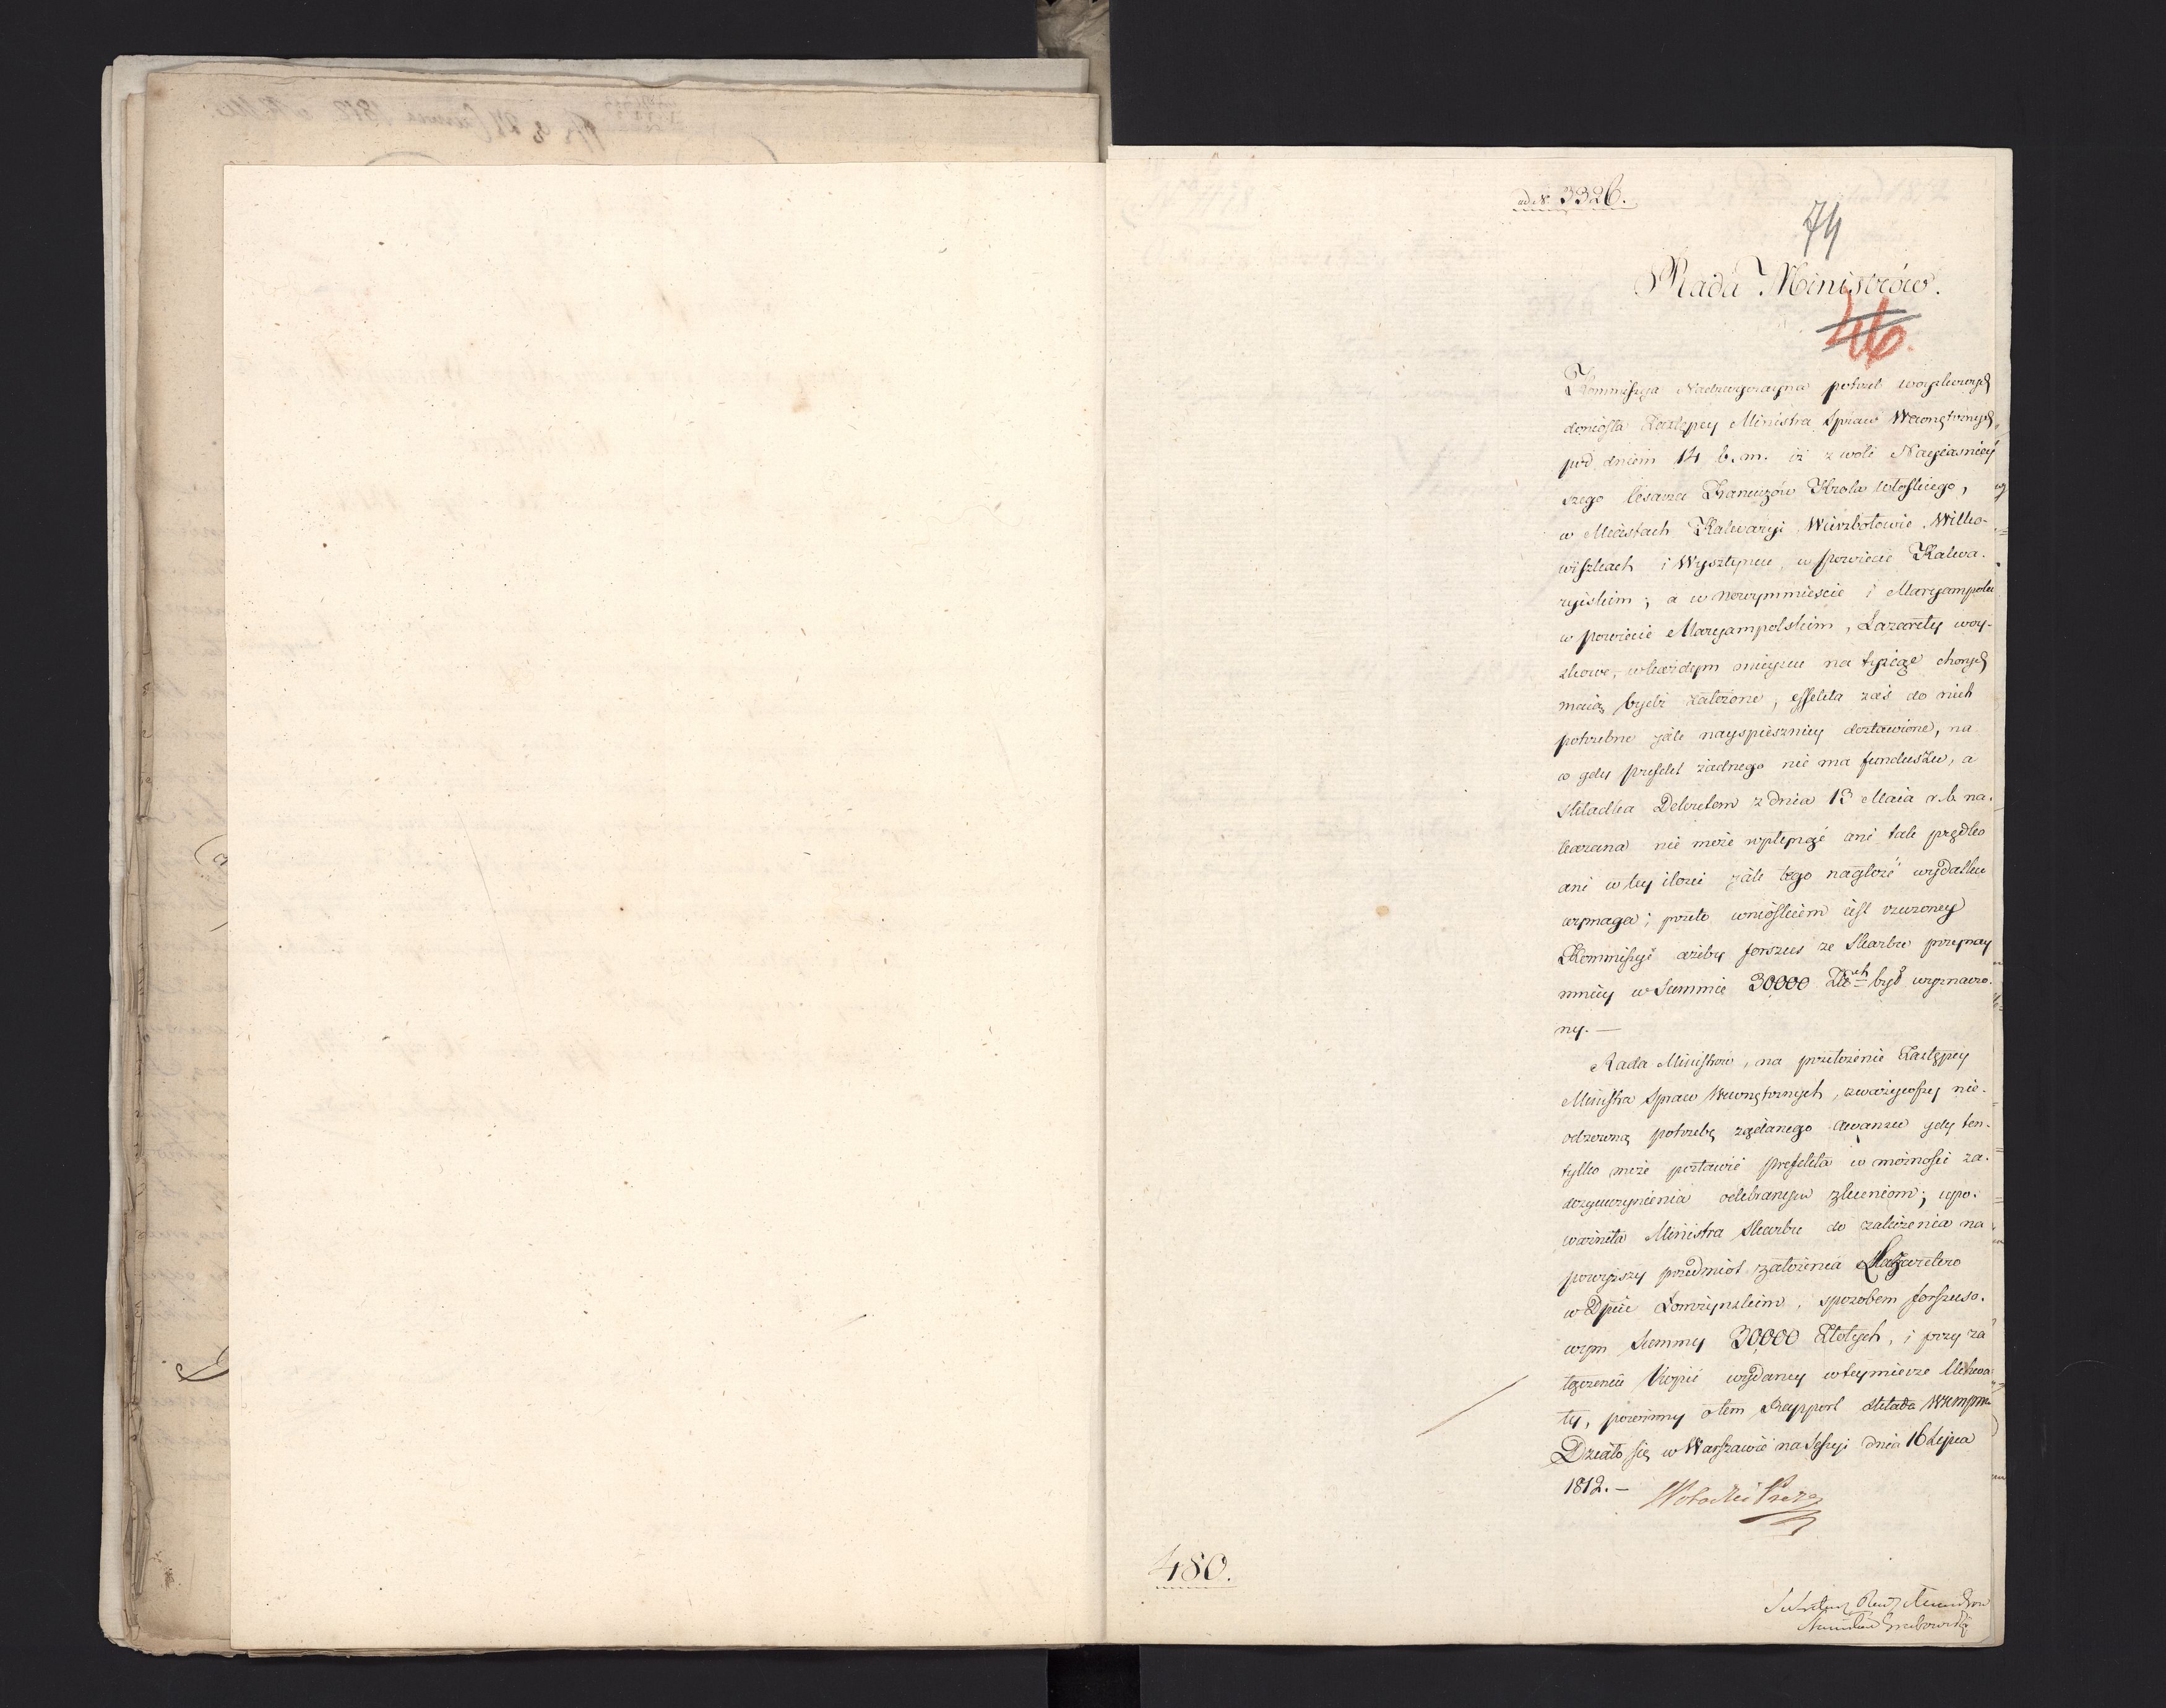 ad N. 3326.
74
Rada Ministrów.
46.
Kommissya Nadzwyczayna potrzeb woyskowych
doniosła Zastępcy Ministra Spraw Wewnętrznych
pod dniem 14 b. m. iż z woli Nayiaśniey
szego Cesarza Francuzów Króla Włoskiego,
w Miastach Kalwaryi, Wierzbołowie, Wiłko-
wiszkach i Wysztyncu, w powiecie Kalwa-
ryiskim; a w Nowymmieście i Maryampolu
w powiecie Maryampolskim, Lazarety woy-
skowe, w każdym mieyscu na tysiąc chorych
maią bydź założone, effekta zaś do nich
potrzebne iak nayspieszniey dostawione, na
co gdy prefekt żadnego nie ma funduszu, a
składka Dekretem z dnia 13 Maia r. b. na-
kazana nie może wpłynąć ani tak prędko
ani w tey ilości iak tego nagłość wydatku
wymaga; przeto wnioskiem iest rzeczoney
Kommissyi ażeby forszus ze Skarbu przynay
mniey w Summie 30000 Złch był wyznaczo-
ny. —
Rada Ministrów, na przełożenie Zastępcy
Ministra Spraw Wewnętrznych, zważywszy nie-
odzowną potrzebę żądanego awansu gdy ten-
tylko może postawić prefekta w możności za-
dosyćuczynienia odebranym zleceniom; upo-
ważniła Ministra Skarbu do założenia na
powyższy przedmiot założenia Lazaretów
w Dpcie Łomżyńskim, sposobem forszuso-
wym Summy 30000 Złotych, i przy za
łączeniu Kopii wydaney w teymierze Uchwa-
ły, powinny o tem Rapport składa
Działo się w Warszawie na Sessyi dnia 16 Lipca
1812. —
480.
Sekretarz Rady Ministrów
Stanisław Grabowski